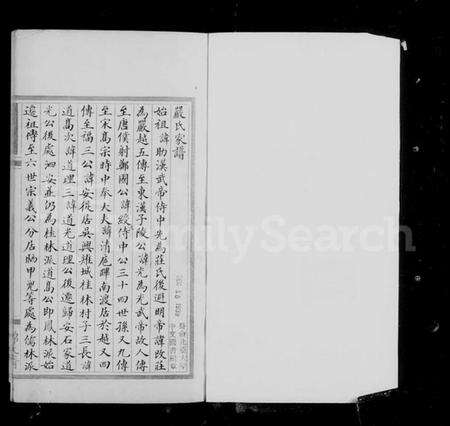 嚴氏家譜
始祖諱助漢武帝侍中先為莊氏後避明帝諱改莊
為嚴越五傳至東漢子陵公諱光為光武帝故人傳
至唐僕射鄭國公諱綬傳中公三十四世孫又九傳
至宋高宗時中奉大夫諱清扈蹕南渡居於越又四
傳至福三公諱安從居吳興雉城桂林村子三長諱
道高次諱道理三諱道光道理公後遷歸安石冢道
光公後處泗安並仍為桂林派道高公即鳳林派始
遷祖傳至六世宗義公分居晒甲兜等處為儒林派
FamilySearch